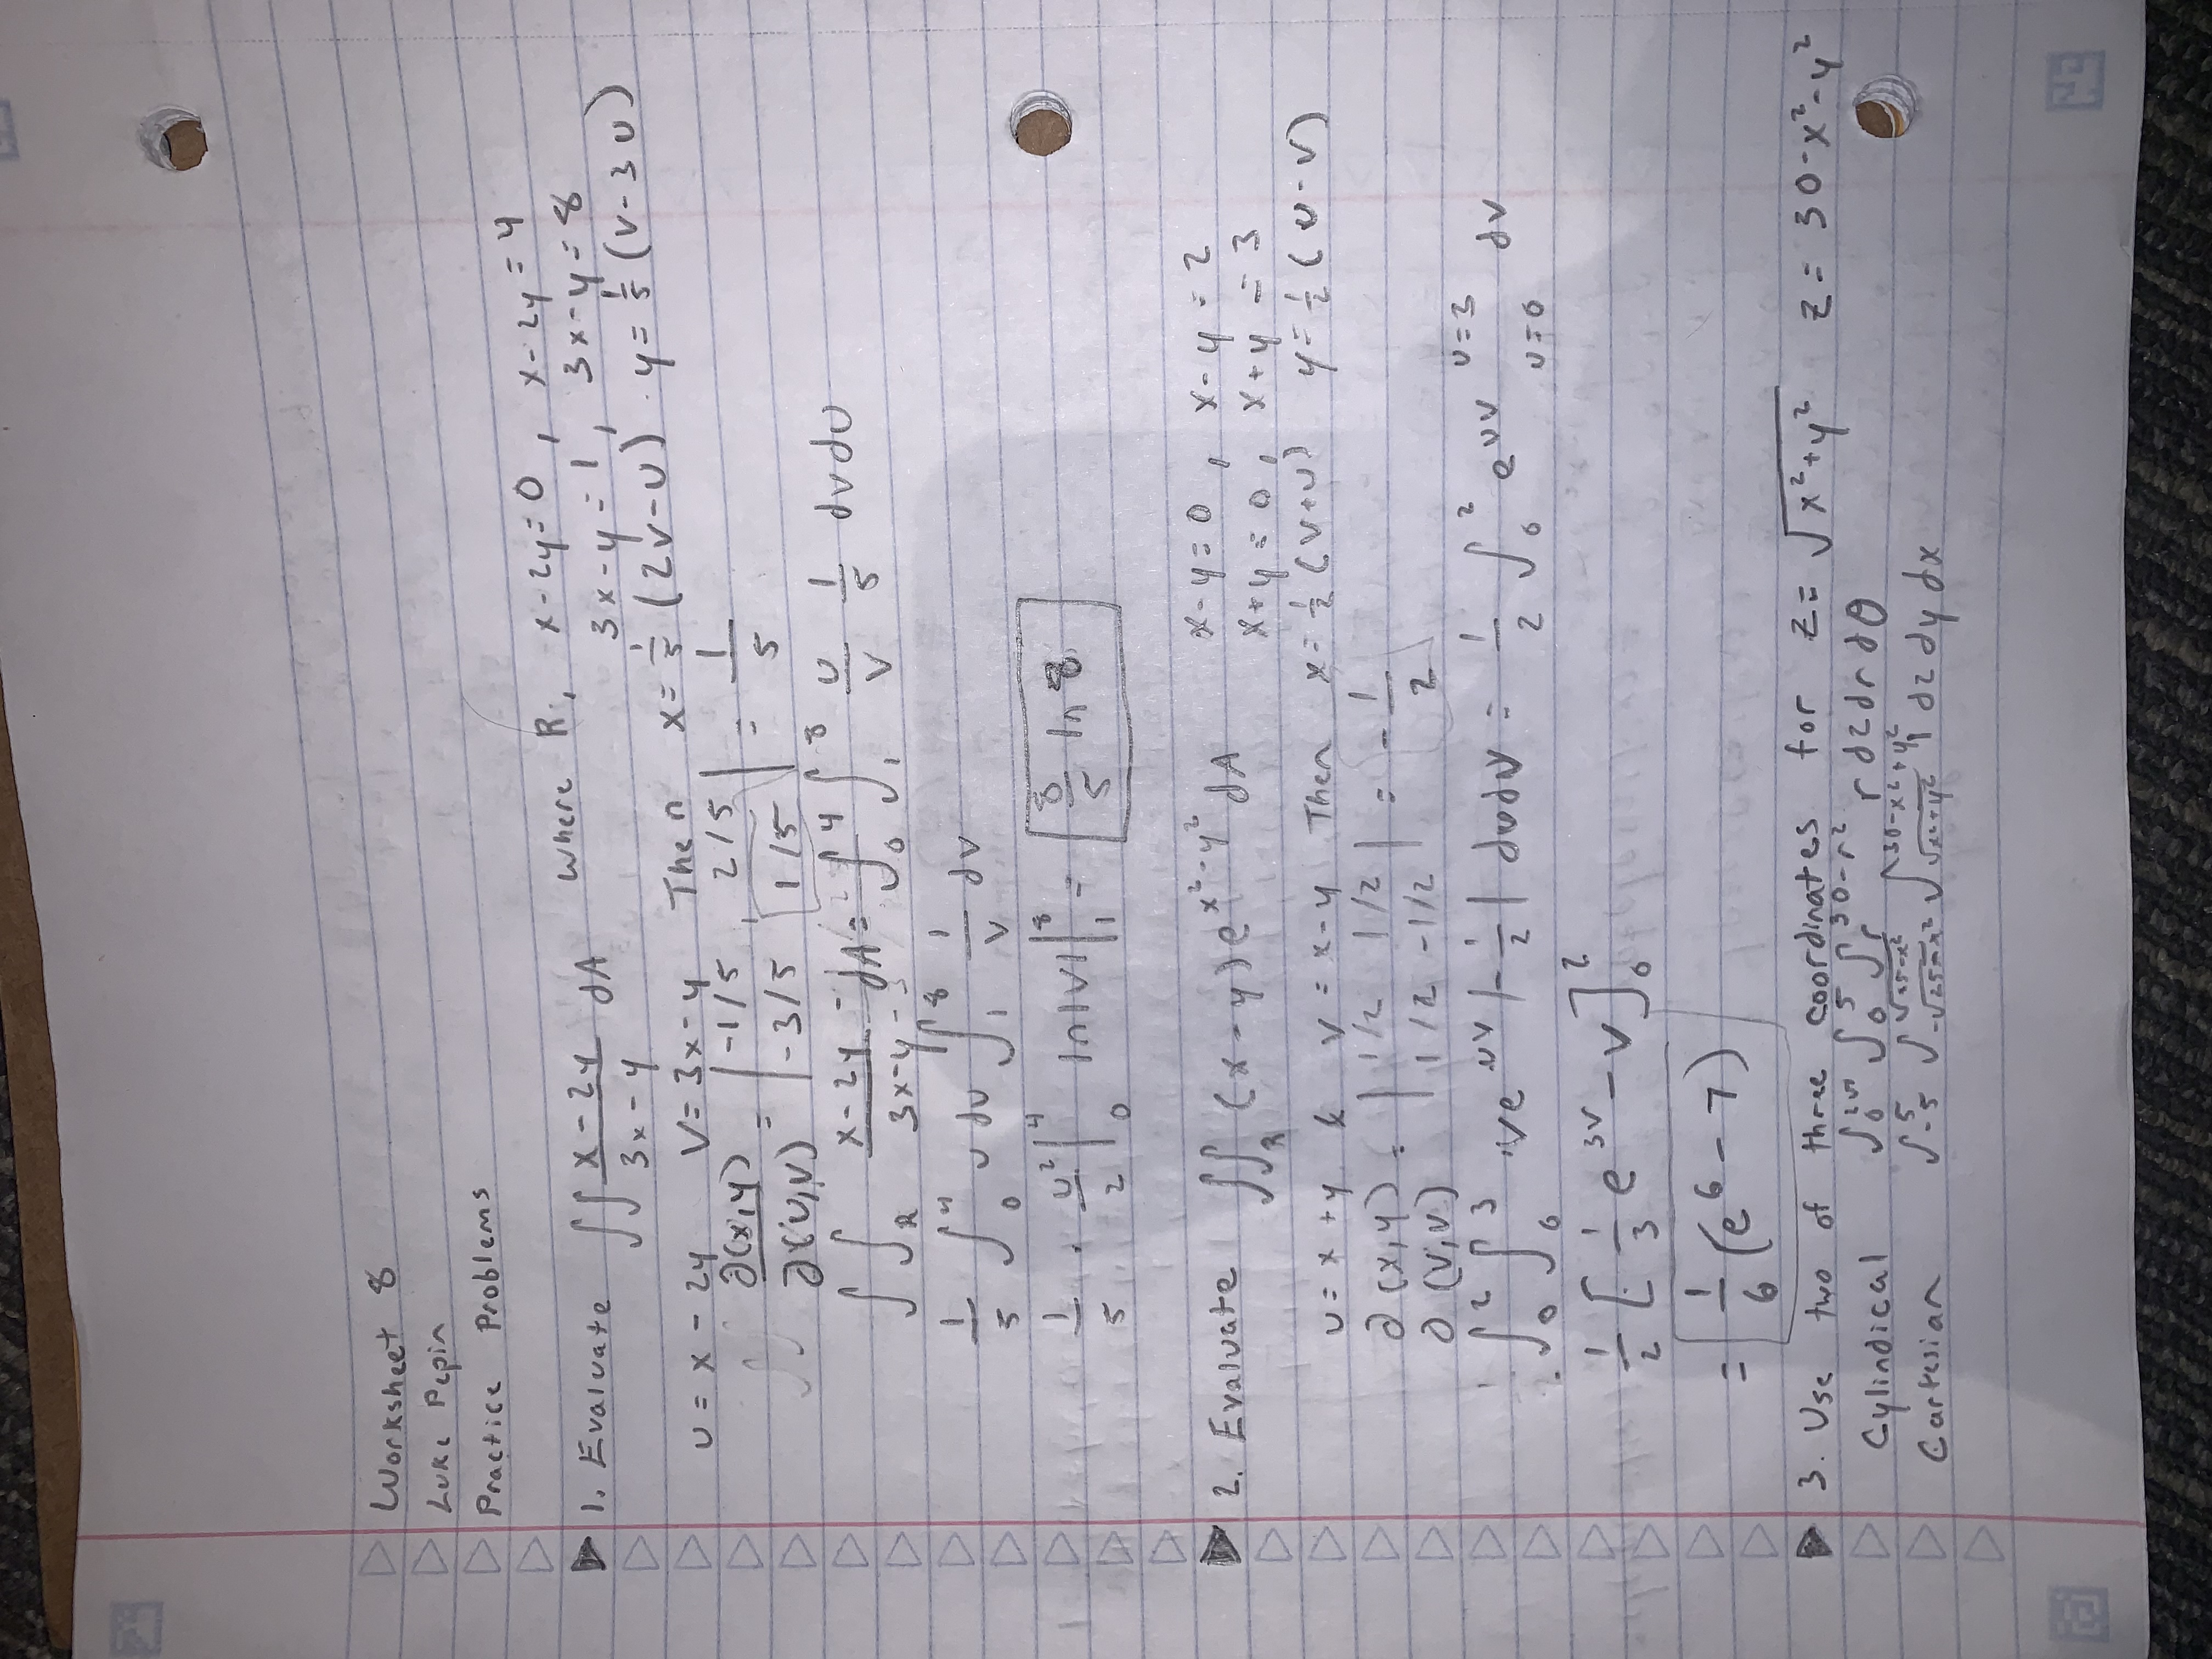 Worksheet 8
Luke Pepin
Practice Problems
1. Evaluate ∫∫ (x-2y)/(3x-y) dA where R, x-2y=0, x-2y=4
3x-y=1, 3x-y=8
u=x-2y v=3x-y Then x=1/5(2v-u) y=1/5(v-3u)
∂(x,y)/∂(u,v) = |-1/5, 2/5; -3/5 1/5| = 1/5
∫∫_R (x-2y)/(3x-y) dA = ∫_0^4 ∫_1^8 u/v 1/5 dvdu
1/5 ∫_0^4 u du ∫_1^8 1/v dv
1/5 · u²/2|_0^4 ln|v||_1^8 = 8/5 ln 8
2. Evaluate ∫∫_R (x-y)e^(x²-y²) dA x-y=0, x-y=2
x+y=0, x+y=3
u=x+y & v=x-y Then x=1/2(v+u) y=1/2(u-v)
∂(x,y) = |1/2 1/2; 1/2 -1/2| = -1/2
∂(u,v)
∫_0^2 ∫_0^3 ve^(uv) |-1/2| dudv = 1/2 ∫_0^2 e^(uv) u=3 u=0 dv
1/2 [1/3 e^(3v) - v]_0^2
= 1/6 (e^6 - 7)
3. Use two of three coordinates for z=√(x²+y²) z=30-x²-y²
Cylindical ∫_0^2π ∫_0^5 ∫_r^(30-r²) r dzdrdθ
Cartesian ∫_-5^5 ∫_-√(25-x²)^√(25-x²) ∫_√(x²+y²)^(30-x²+y²) 1 dz dy dx